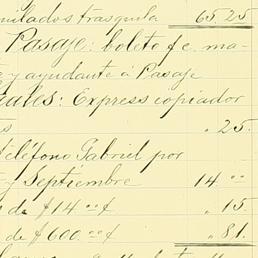 nilados trasquila 65.25
Pasaje: boleto f.c. ma-
y ayudante á Pasaje
Express copiador
" 25.
teléfono Gabriel por
y Septiembre 14.00
de $14.00 " 15.
de $600.00 " 81.